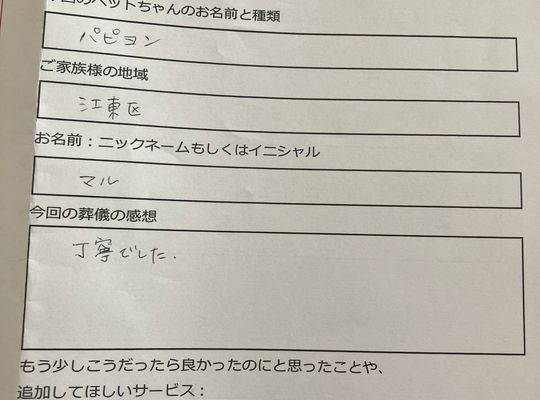 今回のペットちゃんのお名前と種類
パピヨン
ご家族様の地域
江東区
お名前：ニックネームもしくはイニシャル
マル
今回の葬儀の感想
丁寧でした.
もう少しこうだったら良かったのにと思ったことや、
追加してほしいサービス：